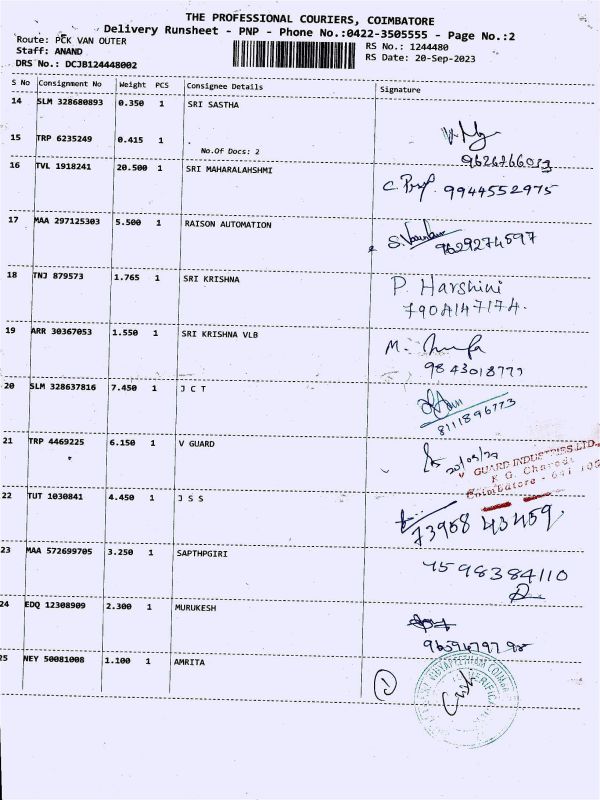 THE PROFESSIONAL COURIERS, COIMBATORE
Delivery Runsheet - PNP - Phone No.:0422-3505555 - Page No.:2
Route: PCK VAN OUTER RS No.: 1244480
Staff: ANAND RS Date: 20-Sep-2023
DRS No.: DCJB124448002
S No Consignment No Weight PCS Consignee Details Signature
14 SLM 328680893 0.350 1 SRI SASTHA
15 TRP 6235249 0.415 1
No.Of Docs: 2
16 TVL 1918241 20.500 1 SRI MAHARALAHSHMI
9944552975
17 MAA 297125303 5.500 1 RAISON AUTOMATION
9629274597
18 TNJ 879573 1.765 1 SRI KRISHNA P. Harshini
19 ARR 30367053 1.550 1 SRI KRISHNA VLB M.
9843018777
20 SLM 328637816 7.450 1 J C T
8111896773
21 TRP 4469225 6.150 1 V GUARD
V GUARD INDUSTRIES LTD.,
K G.
Coimbatore - 641
22 TUT 1030841 4.450 1 J S S
73958 43459
23 MAA 572699705 3.250 1 SAPTHPGIRI
7598384110
24 EDQ 12308909 2.300 1 MURUKESH
25 NEY 50081008 1.100 1 AMRITA 1